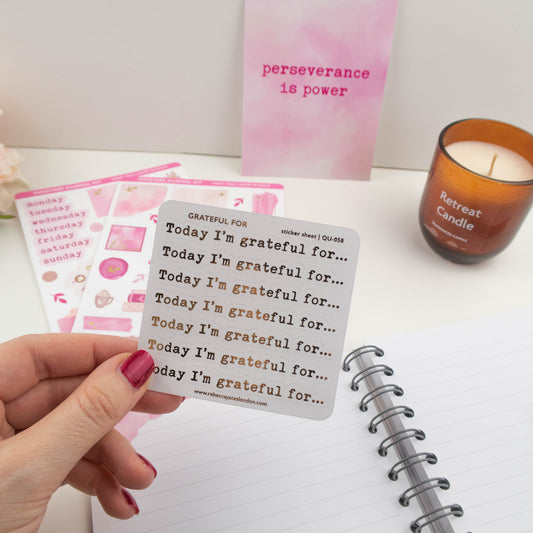 perseverance
is power
Retreat
Candle
monday
tuesday
wednesday
thursday
friday
saturday
sunday
GRATEFUL FOR
sticker sheet | QU-058
Today I'm grateful for...
Today I'm grateful for...
Today I'm grateful for...
Today I'm grateful for...
Today I'm grateful for...
Today I'm grateful for...
Today I'm grateful for...